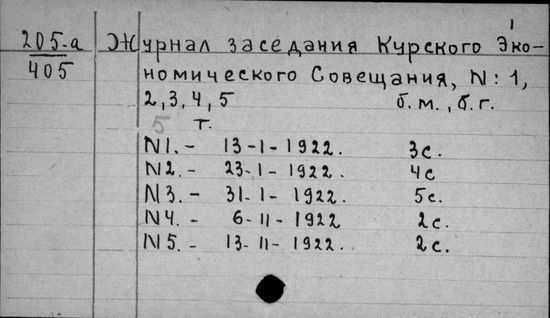 1
205-а Журнал заседания Курского Эко-
405 номического Совещания, N: 1,
2, 3, 4, 5 б.м., б.г.
5 т.
N1. - 13-1-1922. 3с.
N2. - 23-1-1922. 4с
N3. - 31-1-1922. 5с.
N4. - 6-11-1922 2с.
N5. - 13-11-1922. 2с.